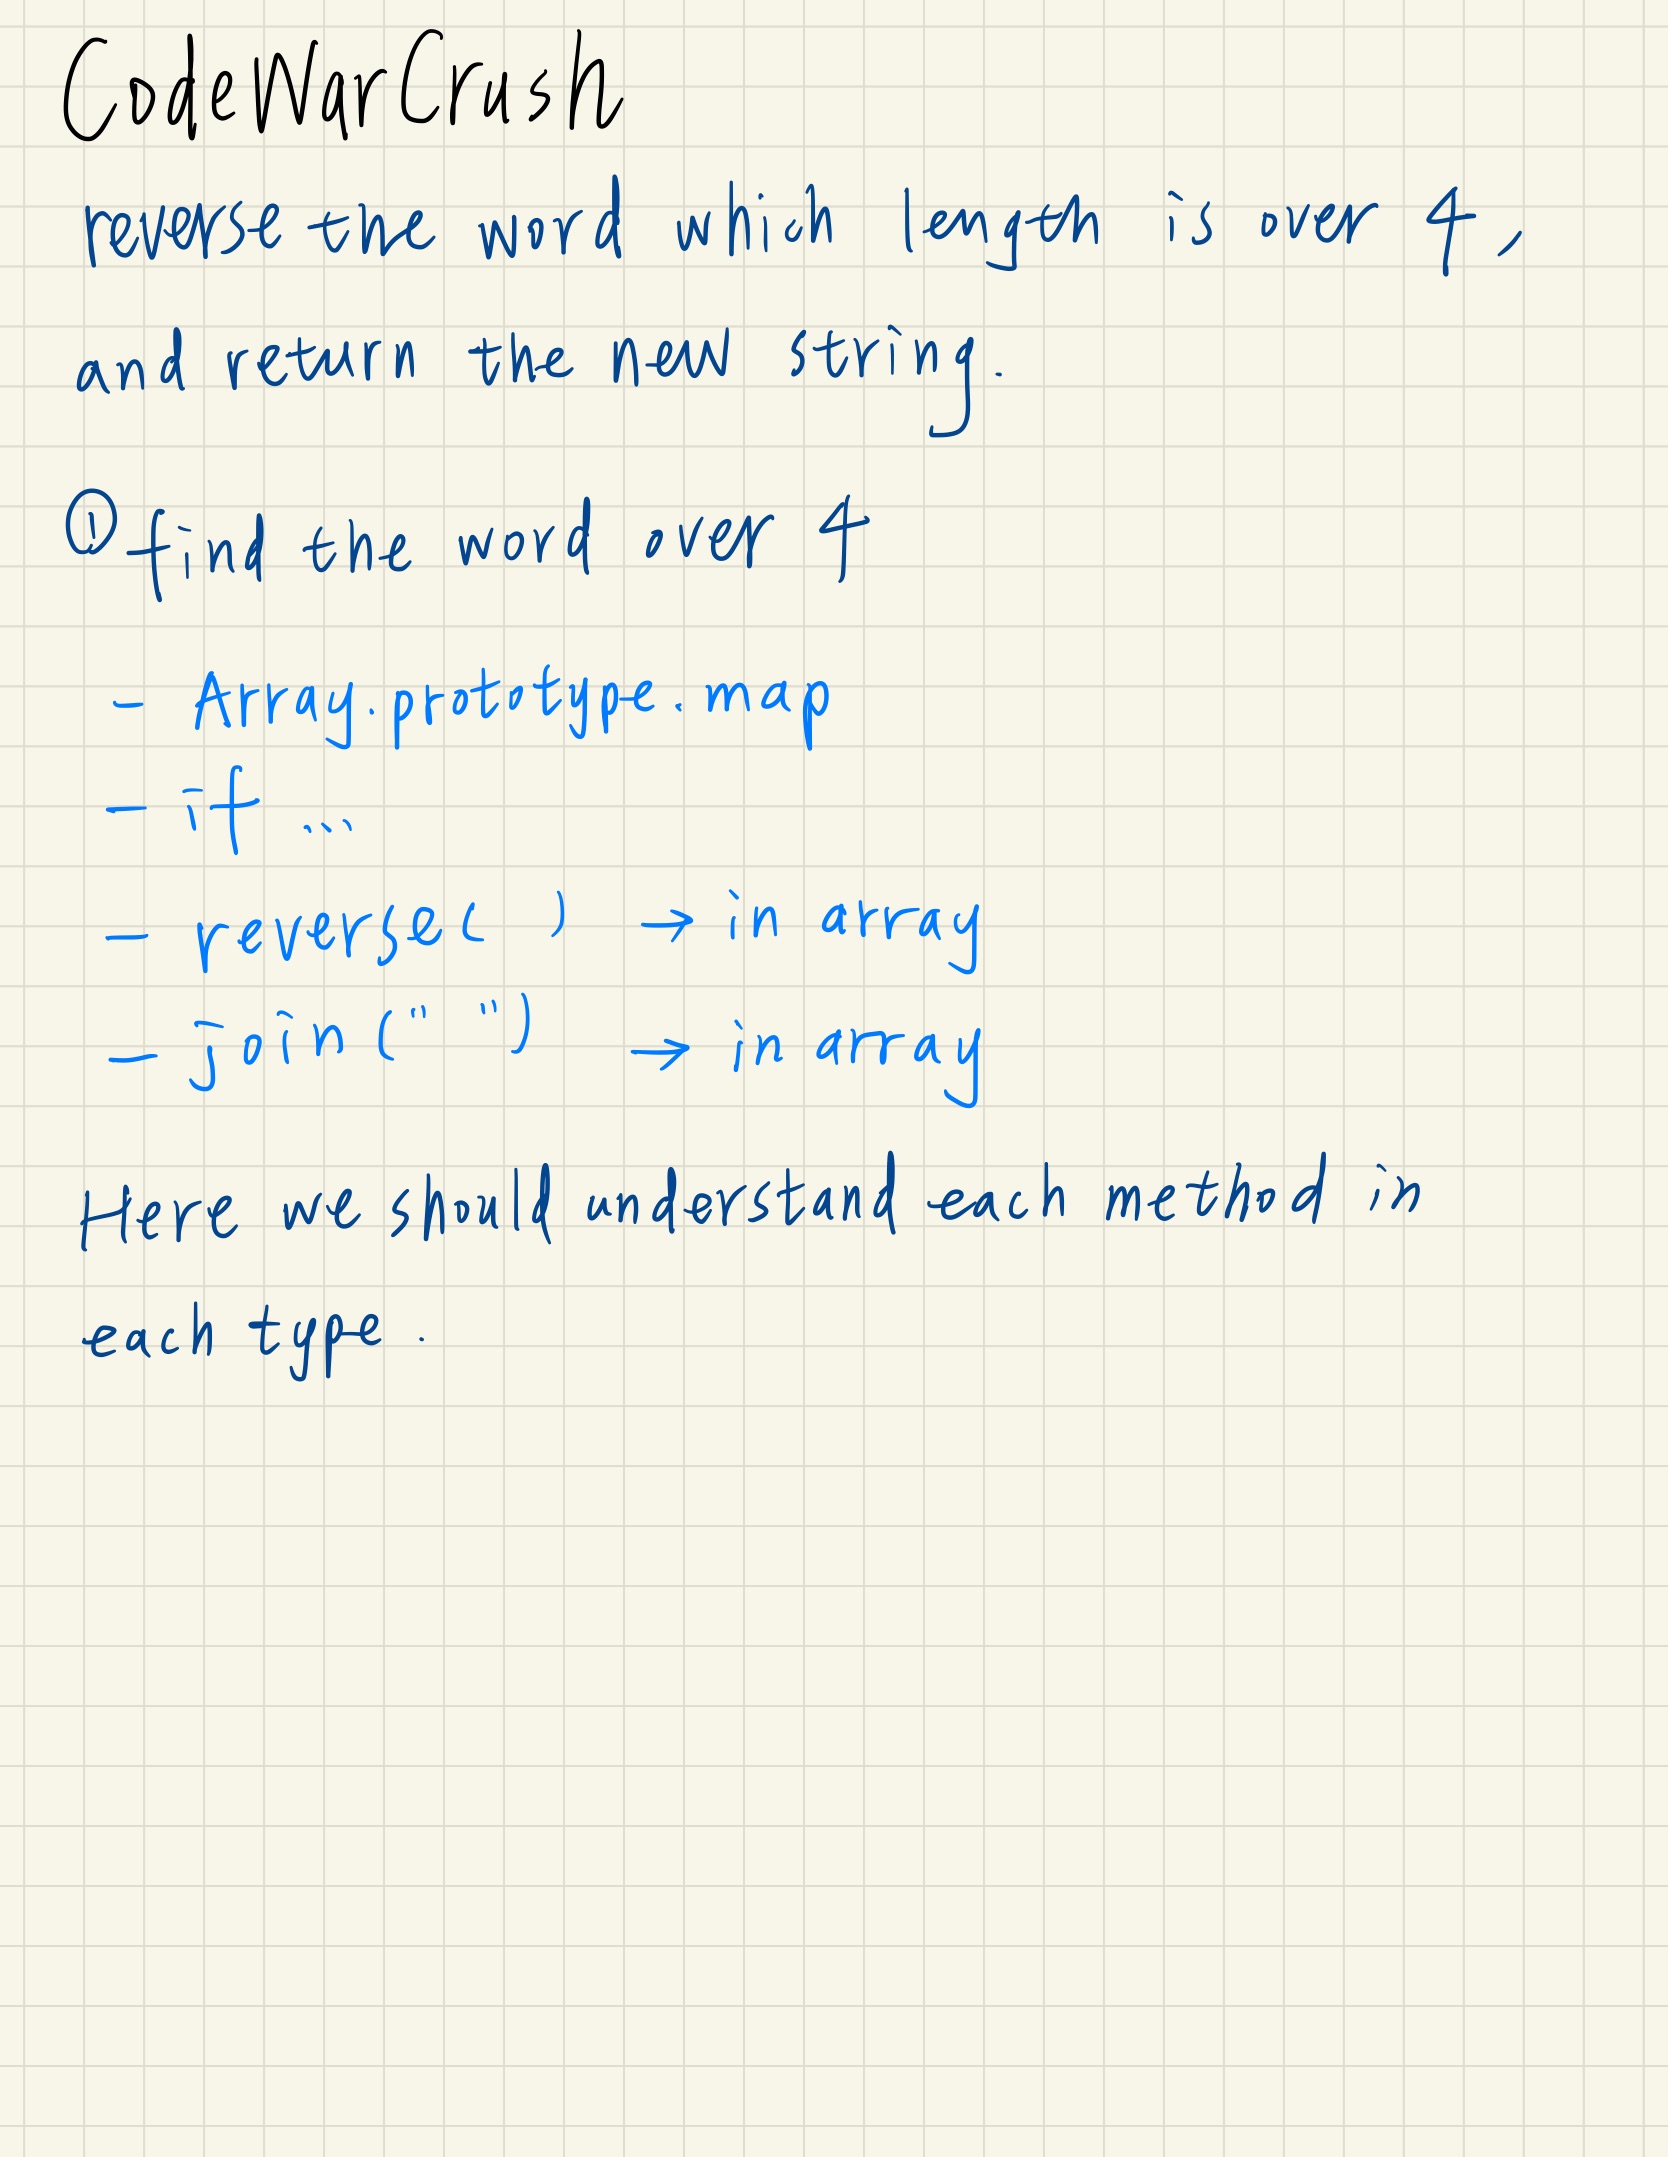 CodeWarCrush
reverse the word which length is over 4,
and return the new string.
① find the word over 4
- Array.prototype.map
- if ...
- reverse( ) → in array
- join(" ") → in array
Here we should understand each method in
each type.